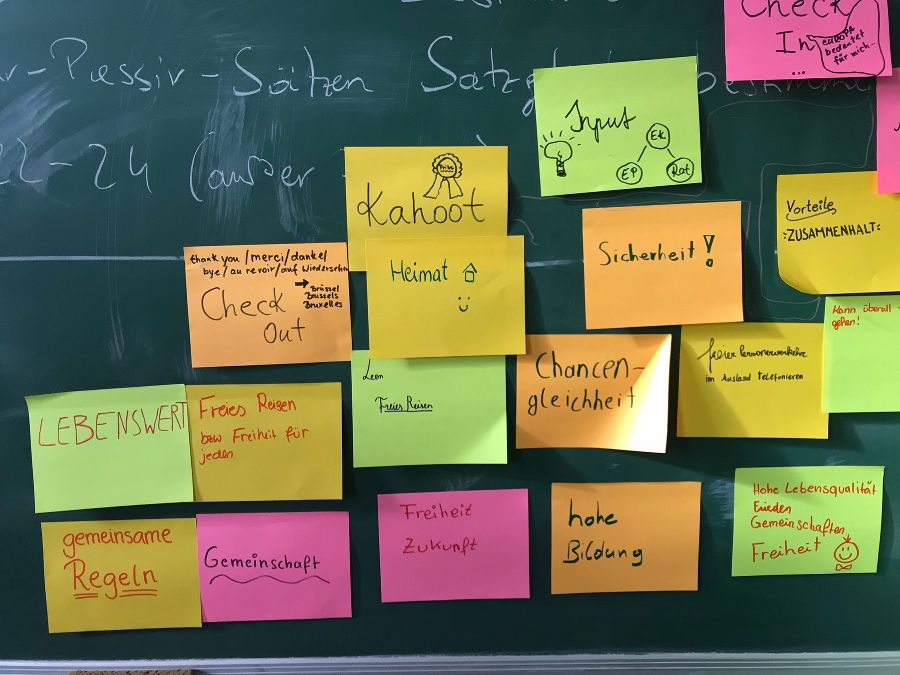 Check
In
...
EUROPA
bedeutet
für mich...
-Passiv-Sätzen
22-24 (außer
Input
EK
EP
Rat
Kahoot
Vorteile
:ZUSAMMENHALT:
Sicherheit!
thank you/merci/danke/
bye/au revoir/auf Wiedersehen
→ Brüssel
Brussels
Bruxelles
Check
Out
Heimat
Kann überall
gehen!
freier Personenverkehr
im Ausland telefonieren
Chancen-
gleichheit
Freies Reisen
LEBENSWERT
Freies Reisen
bzw Freiheit für
jeden
Hohe Lebensqualität
Frieden
Gemeinschaften
Freiheit
hohe
Bildung
Freiheit
Zukunft
Gemeinschaft
gemeinsame
Regeln